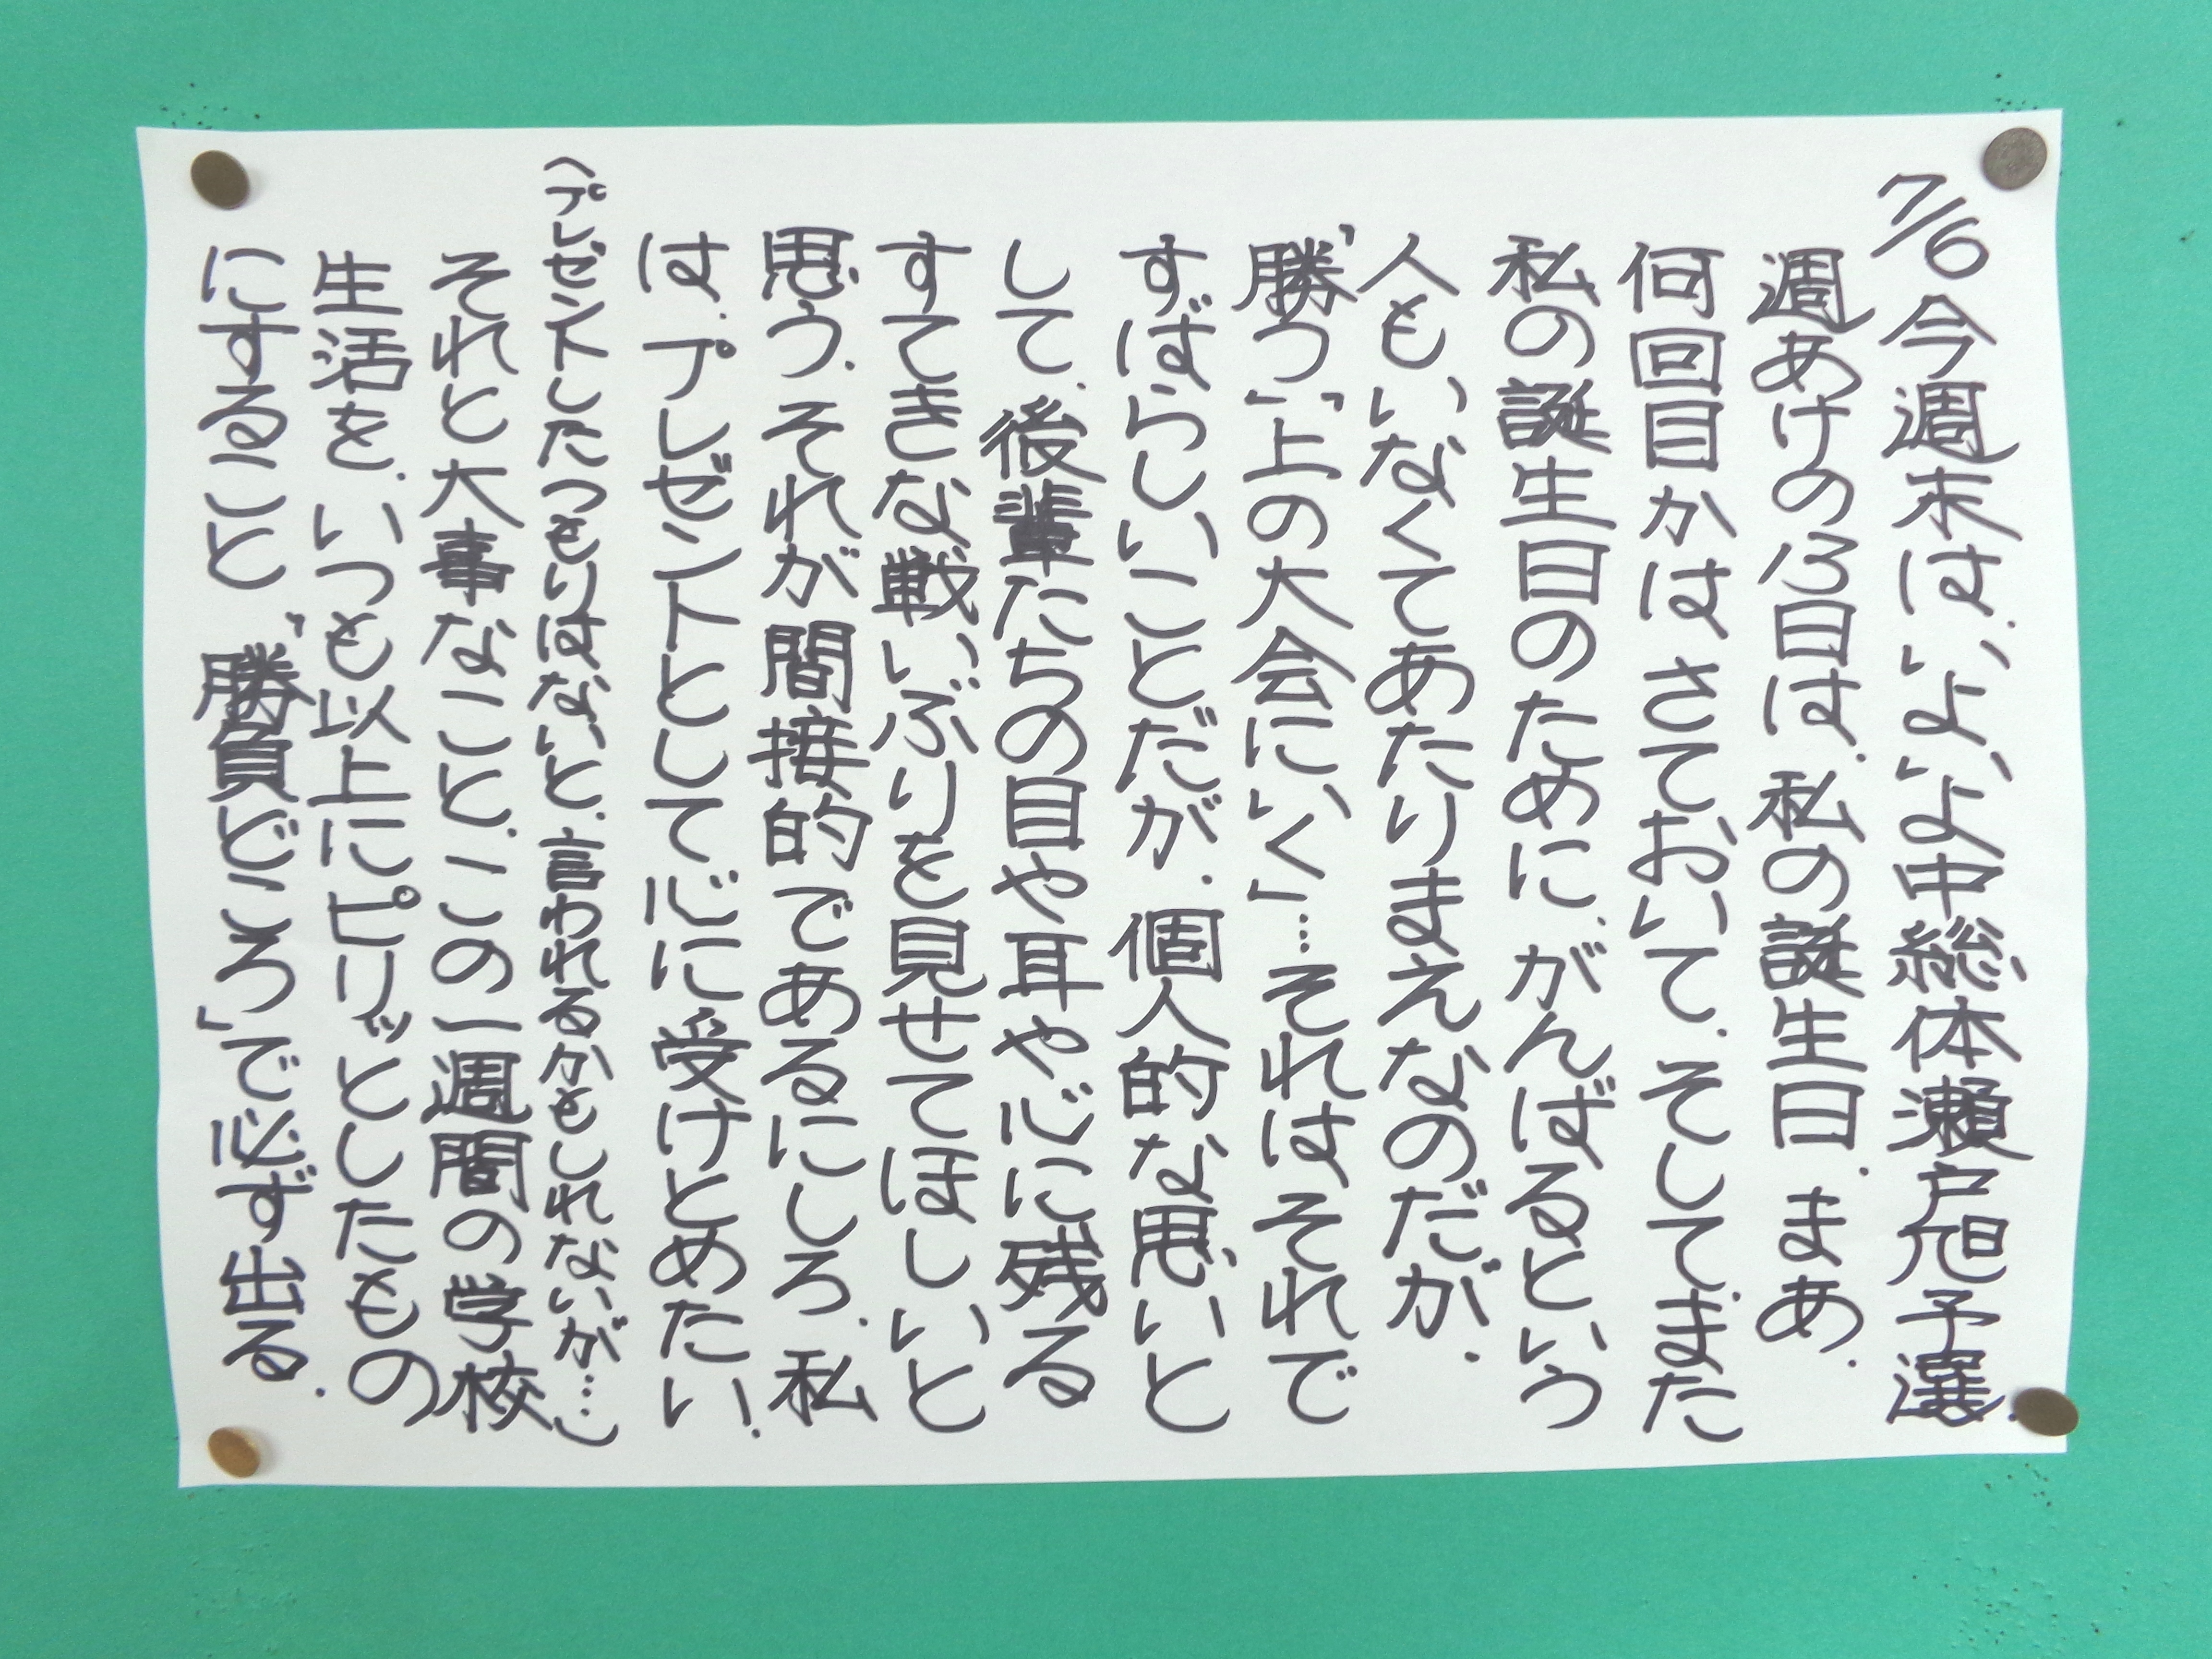 7/6 今週末は、いよいよ中総体瀬戸旭予選.
週あけの13日は.私の誕生日.まあ.
何回目かはさておいて.そして.また
私の誕生日のために.がんばるという
人も、いなくてあたりまえなのだが.
「勝つ」「上の大会にいく」…それはそれで
すばらしいことだが.個人的な思いと
して.後輩たちの目や耳や心に残る
すてきな戦いぶりを見せてほしいと
思う.それが間接的であるにしろ.私
は.プレゼントとして心に受けとめたい.
(プレゼントしたつもりはないと.言われるかもしれないが…)
それと大事なこと.この一週間の学校
生活を.いつも以上にピリッとしたもの
にすること.「勝負どころ」で必ず出る.